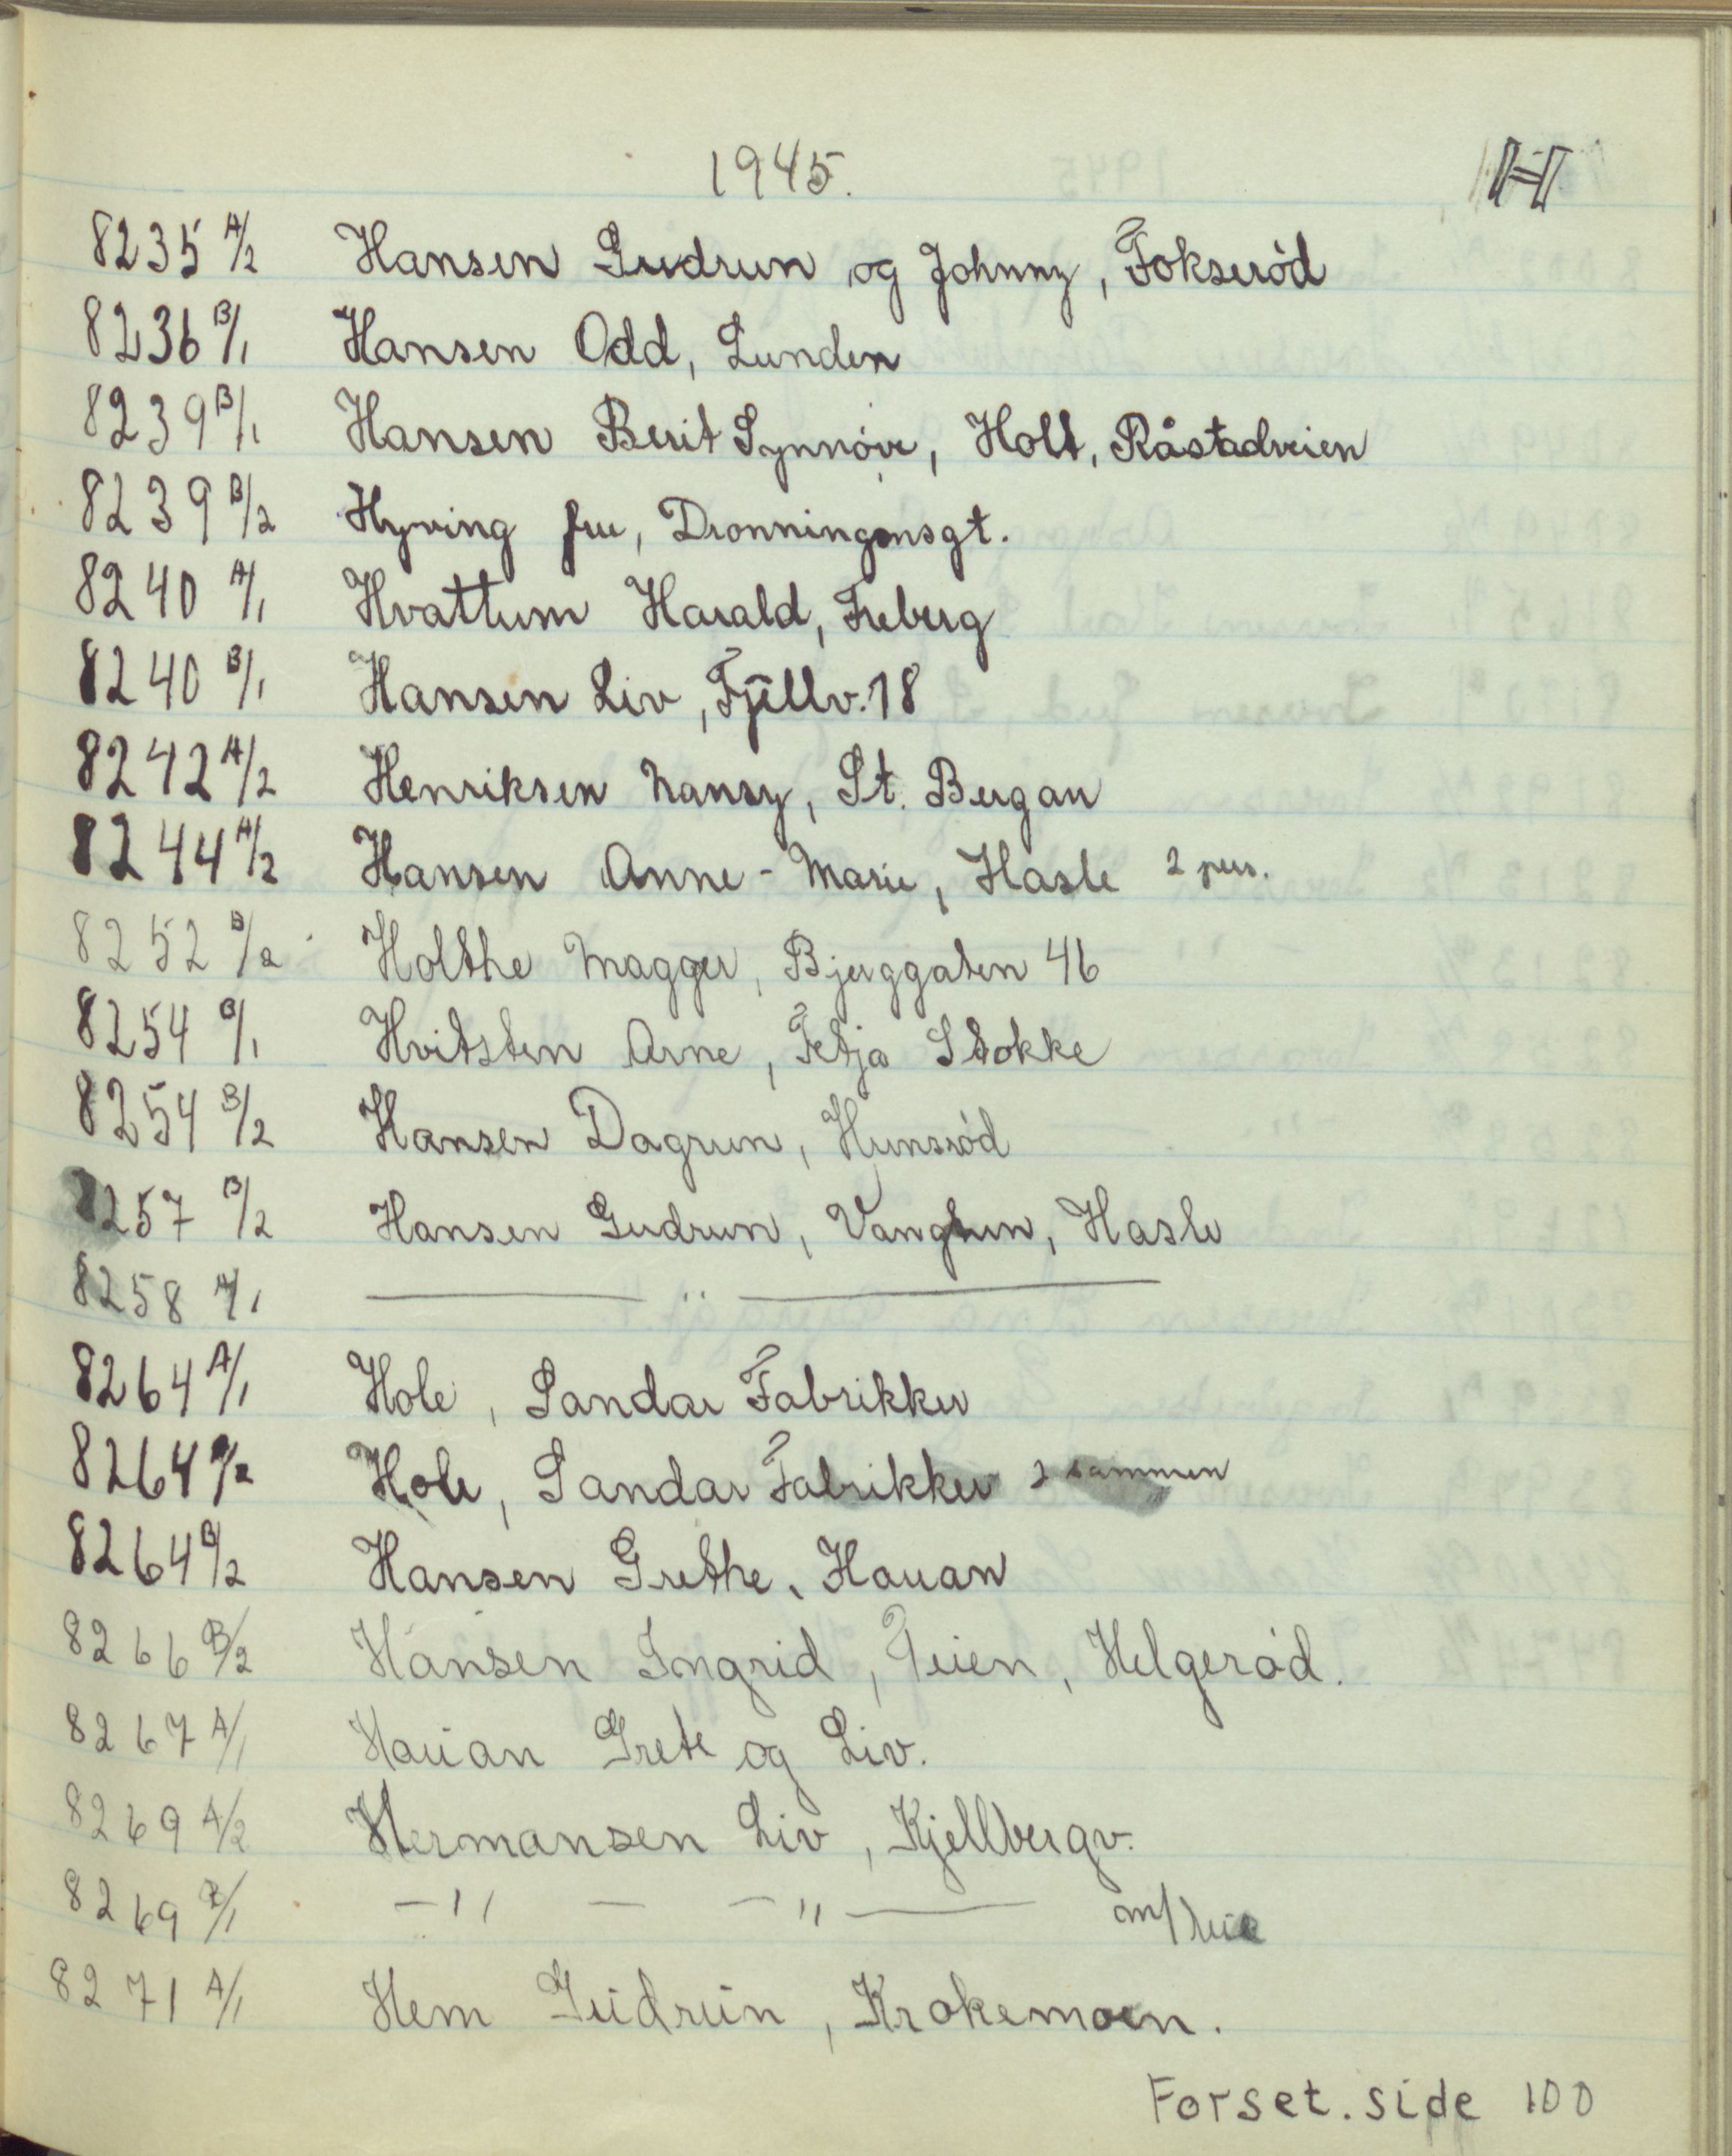 1945. H
8235 A/2 Hansen Gudrun og Johnny, Fokserød
8236 B/1 Hansen Odd, Lunden
8239 B/1 Hansen Berit Synnøve, Holt, Råstadveien
8239 B/2 Hyving frue, Dronningensgt.
8240 A/1 Hvattum Harald, Freberg
8240 B/1 Hansen Liv, Fjellv. 18
8242 A/2 Henriksen Nansy, St. Bergan
8244 A/2 Hansen Anne-Marie, Hasle 2 pers.
8252 B/2 Holthe Magger, Bjerggaten 46
8254 B/1 Hvitsten Arne, Fetja Stokke
8254 B/2 Hansen Dagrun, Hunsrød
8257 B/2 Hansen Gudrun, Vanglun, Hasle
8258 A/1 — " —
8264 A/1 Hole, Sandar Fabrikker
8264 /2 Hole, Sandar Fabrikker 2 sammen
8264 B/2 Hansen Grethe, Hauan
8266 B/2 Hansen Ingrid, Feien, Helgerød.
8267 A/1 Hauan Grete og Liv.
8269 A/2 Hermansen Liv, Kjellbergv.
8269 B/1 — " — — " — m/
8271 A/1 Hem Gudrun, Krokemoen.
Forset. side 100